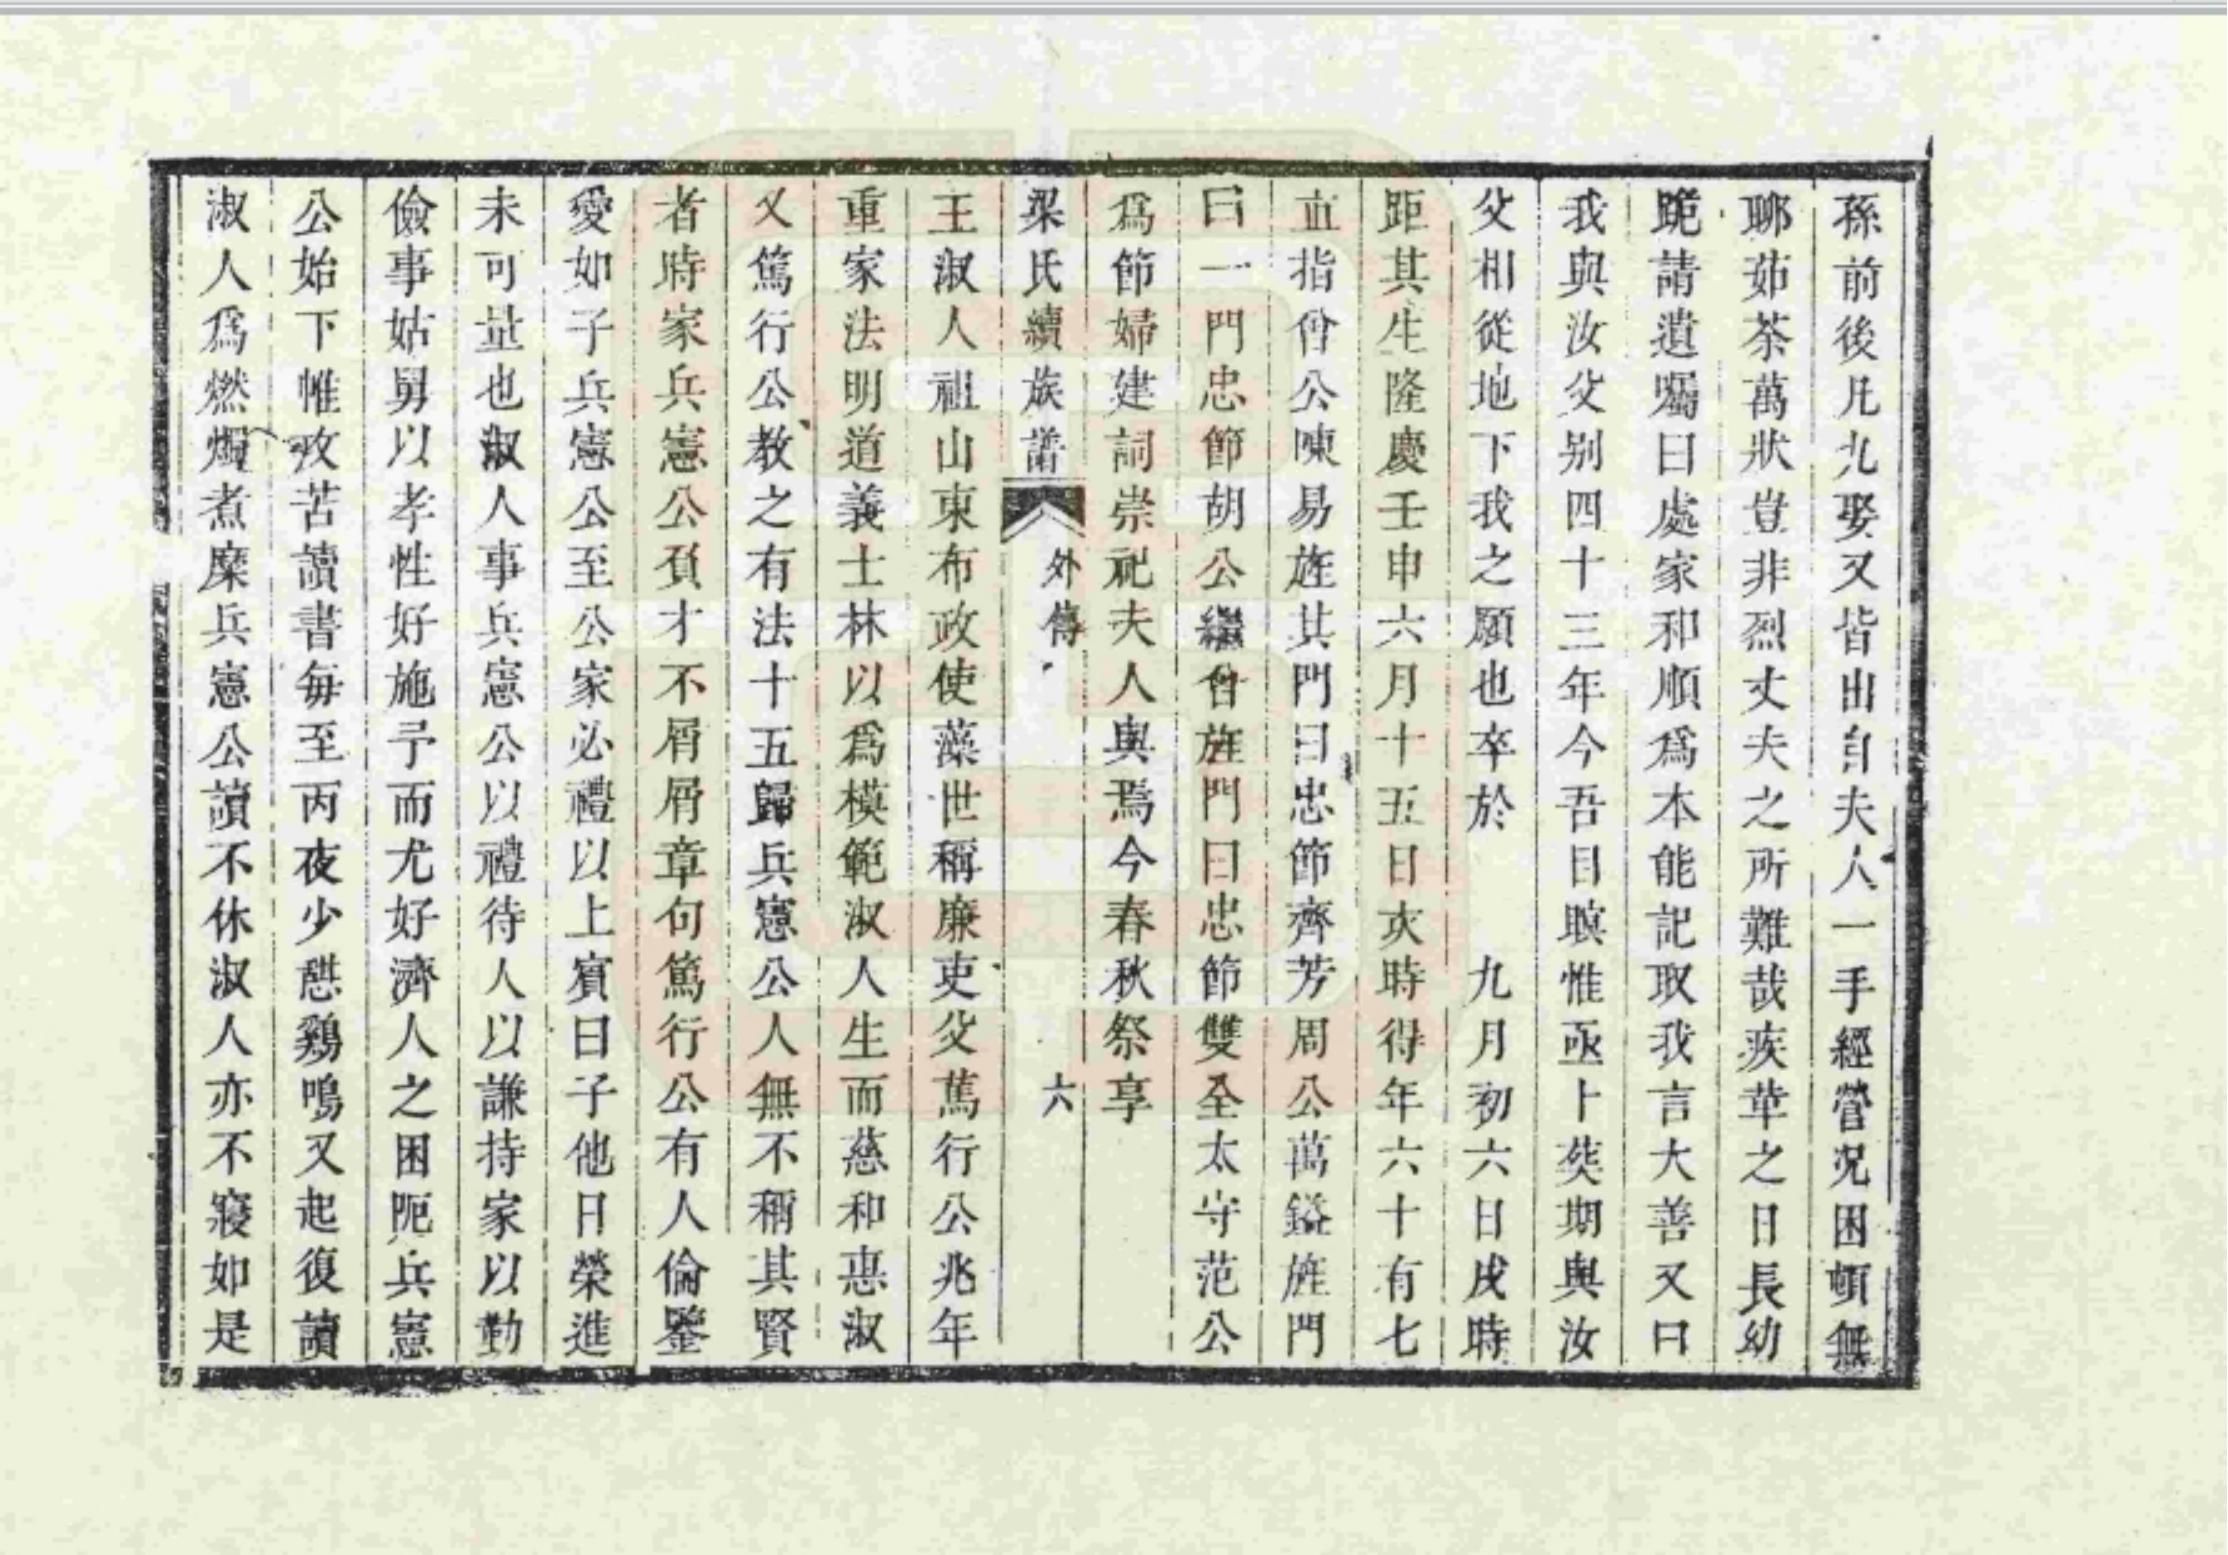 孫前後凡九娶又皆出自夫人一手經營況困頓無
聊茹荼萬狀豈非烈丈夫之所難哉疾革之日長幼
跪請遺囑曰處家和順爲本能記取我言大善又曰
我與汝父别四十三年今吾目瞑惟亟卜葬期與汝
父相從地下我之願也卒於 九月初六日戌時
距其生隆慶壬申六月十五日亥時得年六十有七
直指曾公陳易旌其門曰忠節齊芳周公萬鎰旌門
曰一門忠節胡公繼曾旌門曰忠節雙全太守范公
爲節婦建詞崇祀夫人與焉今春秋祭享
梁氏續族譜 外傳 六
王淑人祖山東布政使藻世稱廉吏父篤行公兆年
重家法明道義士林以爲模範淑人生而慈和惠淑
又篤行公教之有法十五歸兵憲公人無不稱其賢
者時家兵憲公負才不屑屑章句篤行公有人倫鑒
愛如子兵憲公至公家必禮以上賓曰子他日榮進
未可量也淑人事兵憲公以禮待人以謙持家以勤
儉事姑舅以孝性好施予而尤好濟人之困阨兵憲
公始下帷攻苦讀書每至丙夜少憩鷄鳴又起復讀
淑人爲燃燭煮糜兵憲公讀不休淑人亦不寢如是